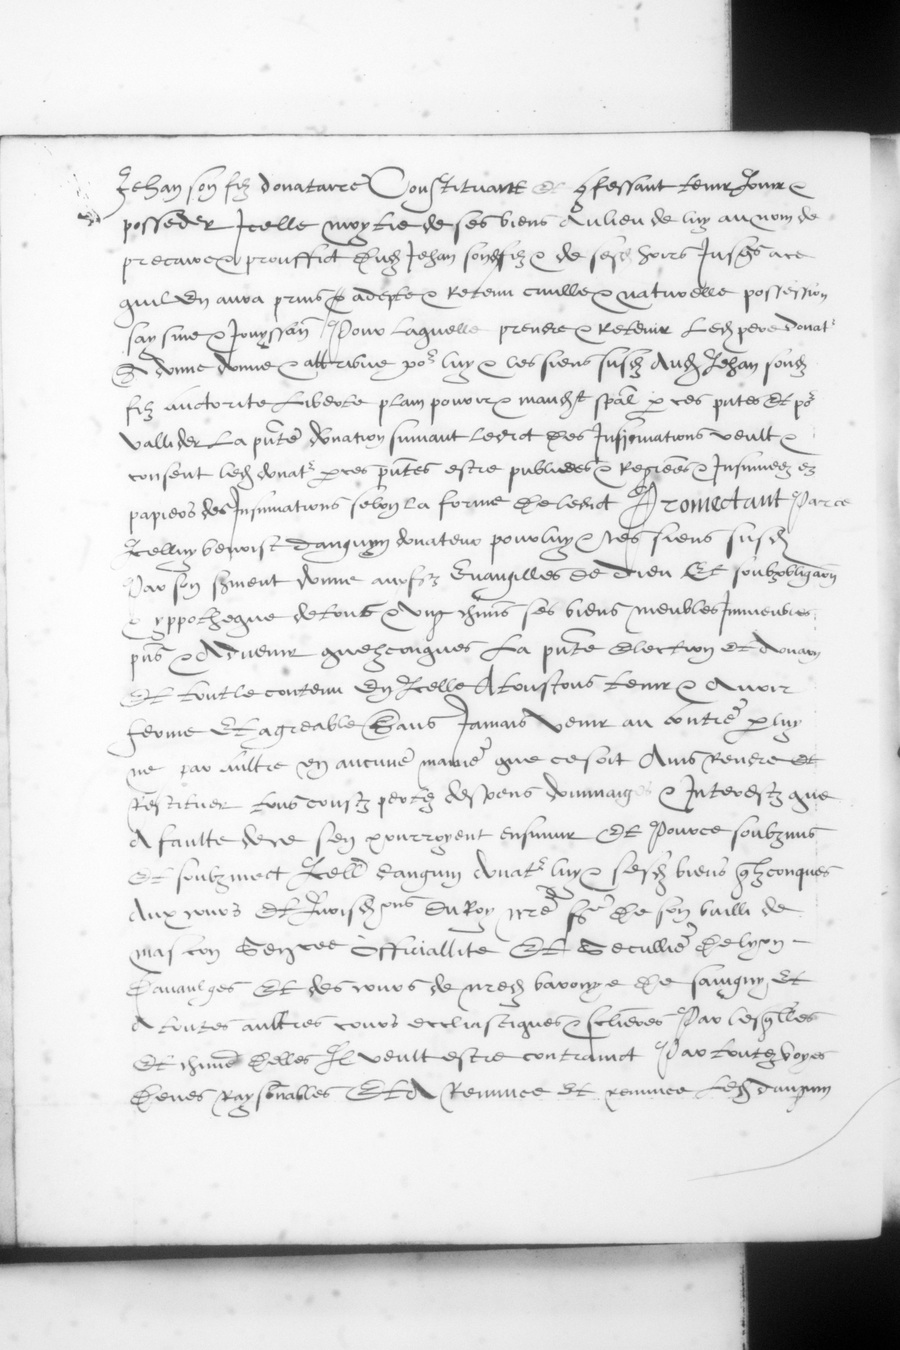 Jehan son filz donataire Constituant et confessant tenir Jouir &
posseder Icelle moytie de ses biens Au lieu de luy au nom de
precaire & prouffict dudt Jehan sondt filz & de sesdt hoirs Jusques a ce
quil en aura prins & adepte & Retenu civille & naturelle possession
saysine & Jouyssan Pour laquelle prendre & Retenir Ledt pere donatr
A donne donne & attribue por luy & les siens susdt Audt Jehan sondt
filz auctorite Liberte plain povoir & mandemt spal par ces pntes Et por
vallider La pnte donation suivant ledict des Insinuations veult &
consent ledt donatr par ces pntes estre publiees & Regrees & Insinuees ez
papiers des Insinuations selon la forme de ledict Promectant Par ce
Icelluy benoist danguyn donateur pour luy & les siens susdt
Par son serment donne aux stz Evangilles de dieu Et soubz obligaon
& yppotheque de tous & ung chuns ses biens meubles Immeubles
pns & Advenir quelzconques La pnte election Et donaon
Et tout le contenu En Icelle A tousiours tenir & Avoir
ferme Et agreable Sans Jamais venir au contre par luy
ne par aultre en aucune maniere que ce soit Ains Rendre Et
Restituer tous coustz pertes despens dommaiges & Interestz que
A faulte de ce sen pourroyent ensuivir Et Pource soubzmis
Et soubzmect Icelld danguin donatr luy & sesdt biens qlzconques
Aux cours Et Jurisdons Du Roy nre sr de son bailli de
mascon Senee Officiallite Et Seculliere de lyon
Et des cours de baronye de savigny Et
A toutes aultres cours eccliastiques & seclieres Par lesqlles
Et chune delles Il veult estre contrainct Par toutes voyes
deues Raysonables Et A Renunce Et renunce Ledt danguin